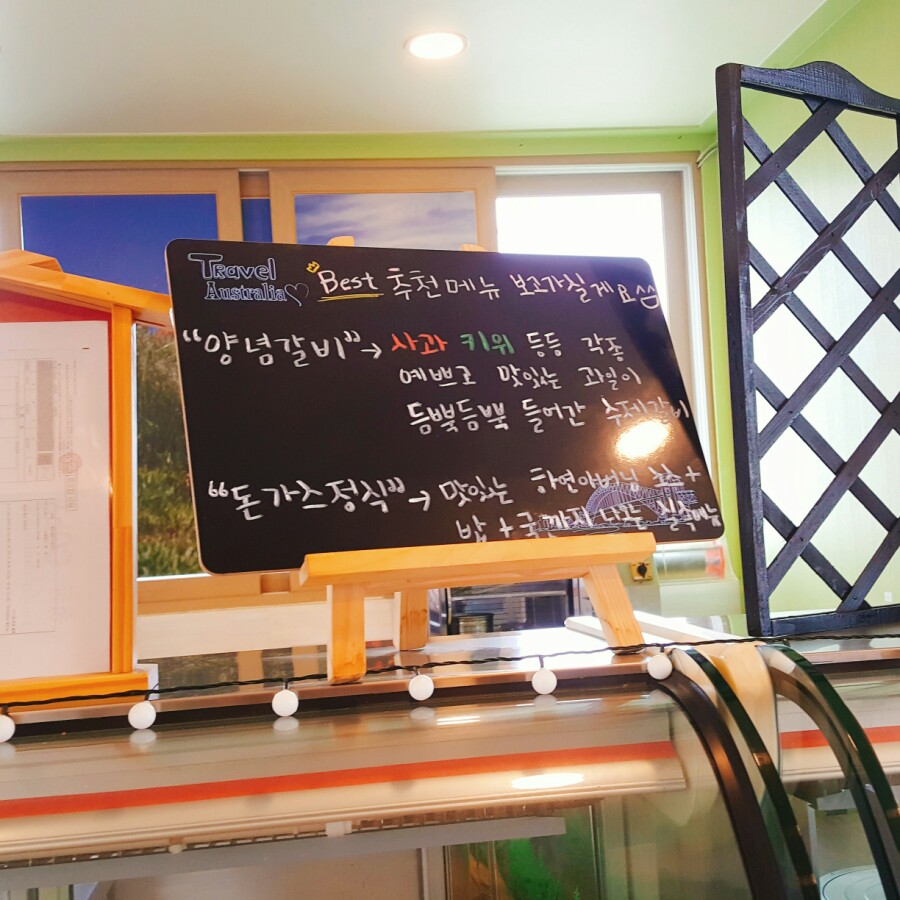 Travel
Australia
Best 추천메뉴 보고가실게요
“양념갈비” → 사과 키위 등등 각종
예쁘고 맛있는 과일이
듬뿍듬뿍 들어간 수제갈비
“돈가스정식” → 맛있는 하연아버님 +
밥 + 국까지